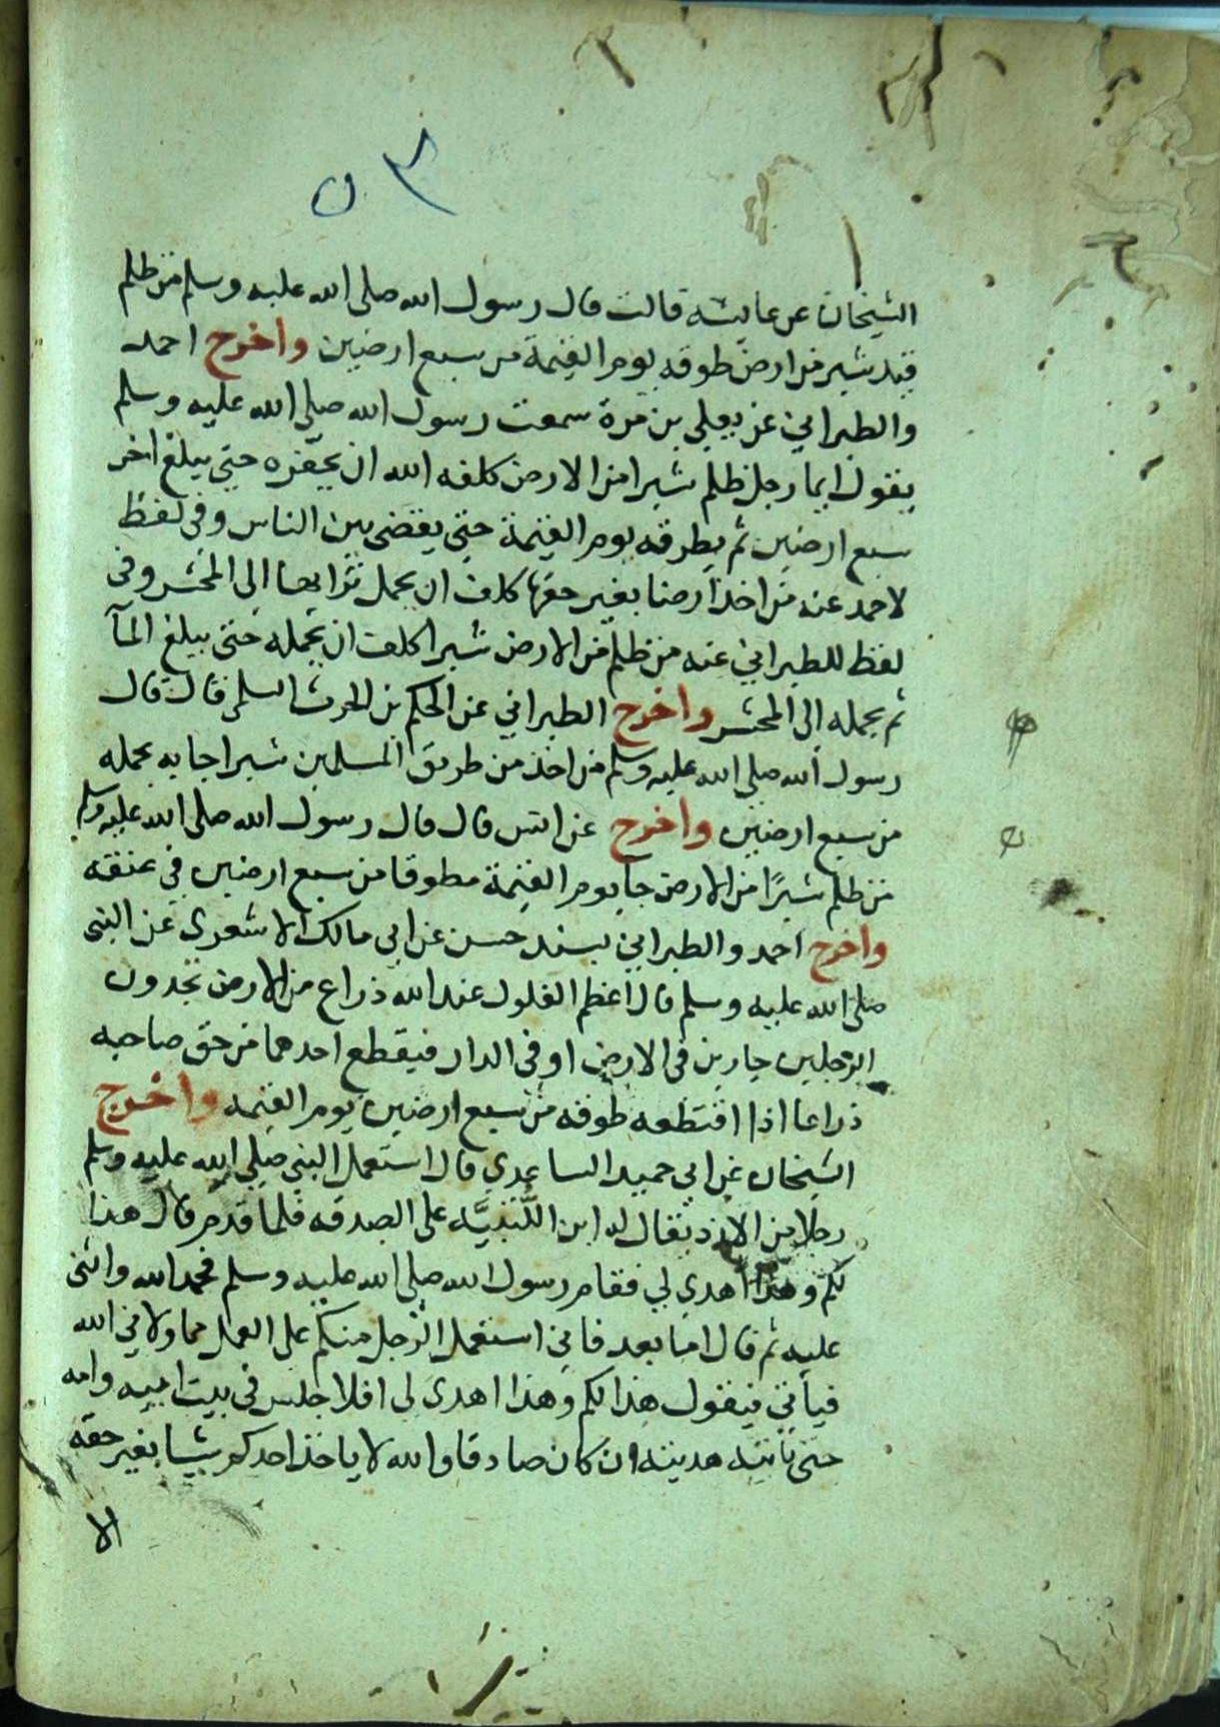 ٥٣
الشيخان عن عايشه قالت قال رسول الله صلى الله عليه وسلم من ظلم
قيد شبر من ارض طوقه يوم القيمة من سبع ارضين واخرج احمد
والطبراني عن يعلى بن مرة سمعت رسول الله صلى الله عليه وسلم
يقول ايما رجل ظلم شبرا من الارض كلفه الله ان يحفره حتى يبلغ اخر
سبع ارضين ثم يطوقه يوم القيمة حتى يقضى بين الناس وفي لفظ
لاحمد عنه من اخذ ارضا بغير حقها كلف ان يحمل ترابها الى المحشر وفي
لفظ للطبراني عنه من ظلم من الارض شبرا كلف ان يحمله حتى يبلغ المآ
ثم يحمله الى المحشر واخرج الطبراني عن الحكم بن الحرث السلمي قال قال
رسول الله صلى الله عليه وسلم من اخذ من طريق المسلمين شبرا جا به يحمله
من سبع ارضين واخرج عن انس قال قال رسول الله صلى الله عليه وسلم
من ظلم شبرًا من الارض جا يوم القيمة مطوقا من سبع ارضين في عنقه
واخرج احمد والطبراني بسند حسن عن ابي مالك الاشعري عن النبي
صلى الله عليه وسلم قال اعظم الغلول عند الله ذراع من الارض تجدون
الرجلين جارين في الارض او في الدار فيقطع احدهما من حق صاحبه
ذراعا اذا اقتطعه طوقه من سبع ارضين يوم القيمه واخرج
الشيخان عن ابي حميد الساعدي قال استعمل النبي صلى الله عليه وسلم
رجلا من الازد يقال له ابن اللُّتْبِيَّه على الصدقه فلما قدم قال هذا
لكم وهذا اهدي لي فقام رسول الله صلى الله عليه وسلم فحمد الله واثنى
عليه ثم قال اما بعد فاني استعمل الرجل منكم على العمل مما ولاني الله
فيأتي فيقول هذا لكم وهذا اهدى لي افلا جلس في بيت ابيه وامه
حتى تاتيه هديته ان كان صادقا والله لا ياخذ احدكم شيا بغير حقه
الا